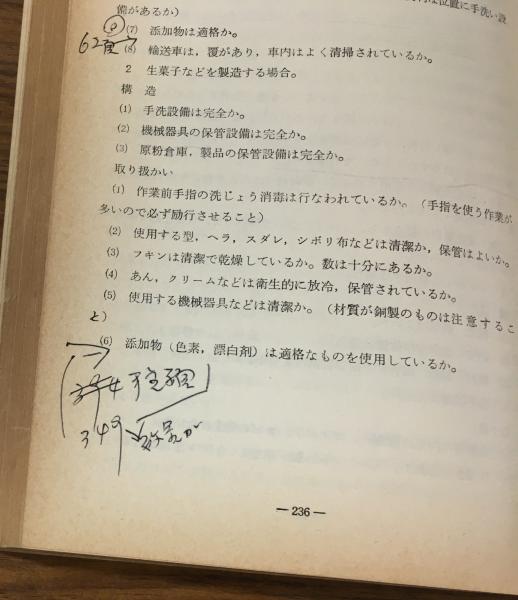 位置に手洗い設
備があるか）
(7) 添加物は適格か。
62
(8) 輸送車は，覆があり，車内はよく清掃されているか。
2 生菓子などを製造する場合。
構 造
(1) 手洗設備は完全か。
(2) 機械器具の保管設備は完全か。
(3) 原粉倉庫，製品の保管設備は完全か。
取り扱かい
(1) 作業前手指の洗じょう消毒は行なわれているか。（手指を使う作業が
多いので必ず励行させること）
(2) 使用する型，ヘラ，スダレ，シボリ布などは清潔か，保管はよいか。
(3) フキンは清潔で乾燥しているか。数は十分にあるか。
(4) あん，クリームなどは衛生的に放冷，保管されているか。
(5) 使用する機械器具などは清潔か。（材質が銅製のものは注意するこ
と）
(6) 添加物（色素，漂白剤）は適格なものを使用しているか。
349
— 236 —